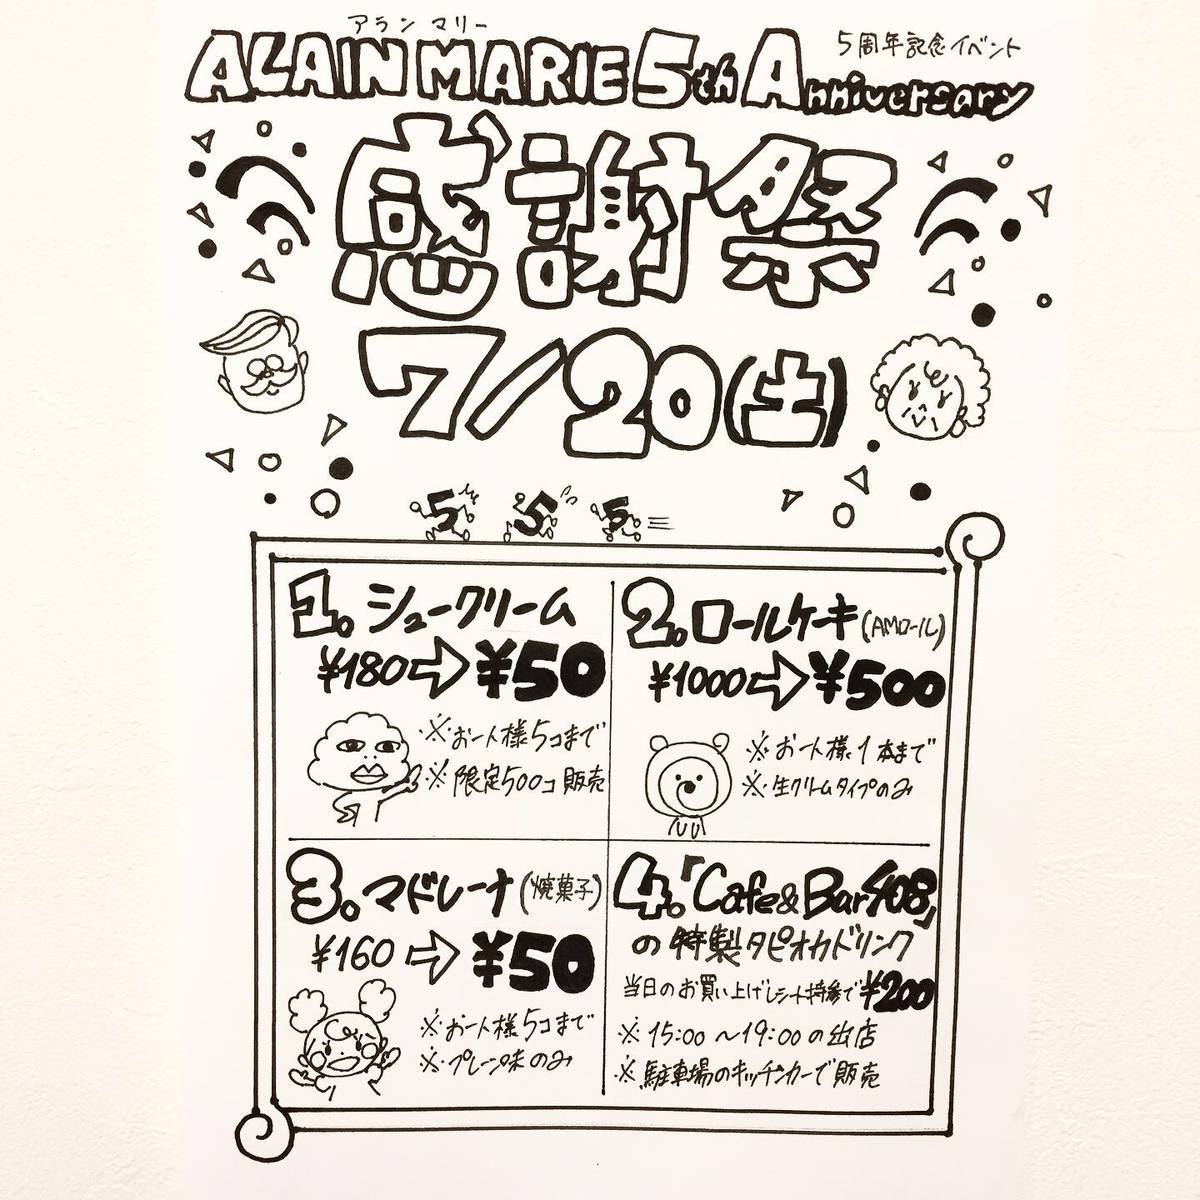 アラン マリー
5周年記念イベント
ALAIN MARIE 5th Anniversary
感謝祭
7/20(土)
5 5 5
1. シュークリーム
¥180⇨¥50
※お一人様5コまで
※限定500コ販売
2. ロールケーキ(AMロール)
¥1000⇨¥500
※お一人様1本まで
※生クリームタイプのみ
3. マドレーヌ(焼菓子)
¥160⇨¥50
※お一人様5コまで
※プレーン味のみ
4.「Cafe&Bar408」
の特製タピオカドリンク
当日のお買い上げレシート持参で¥200
※15:00〜19:00の出店
※駐車場のキッチンカーで販売